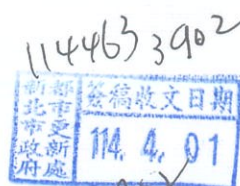 1144633902
新北市政府
都市更新處
簽稿收文日期
114. 4. 01